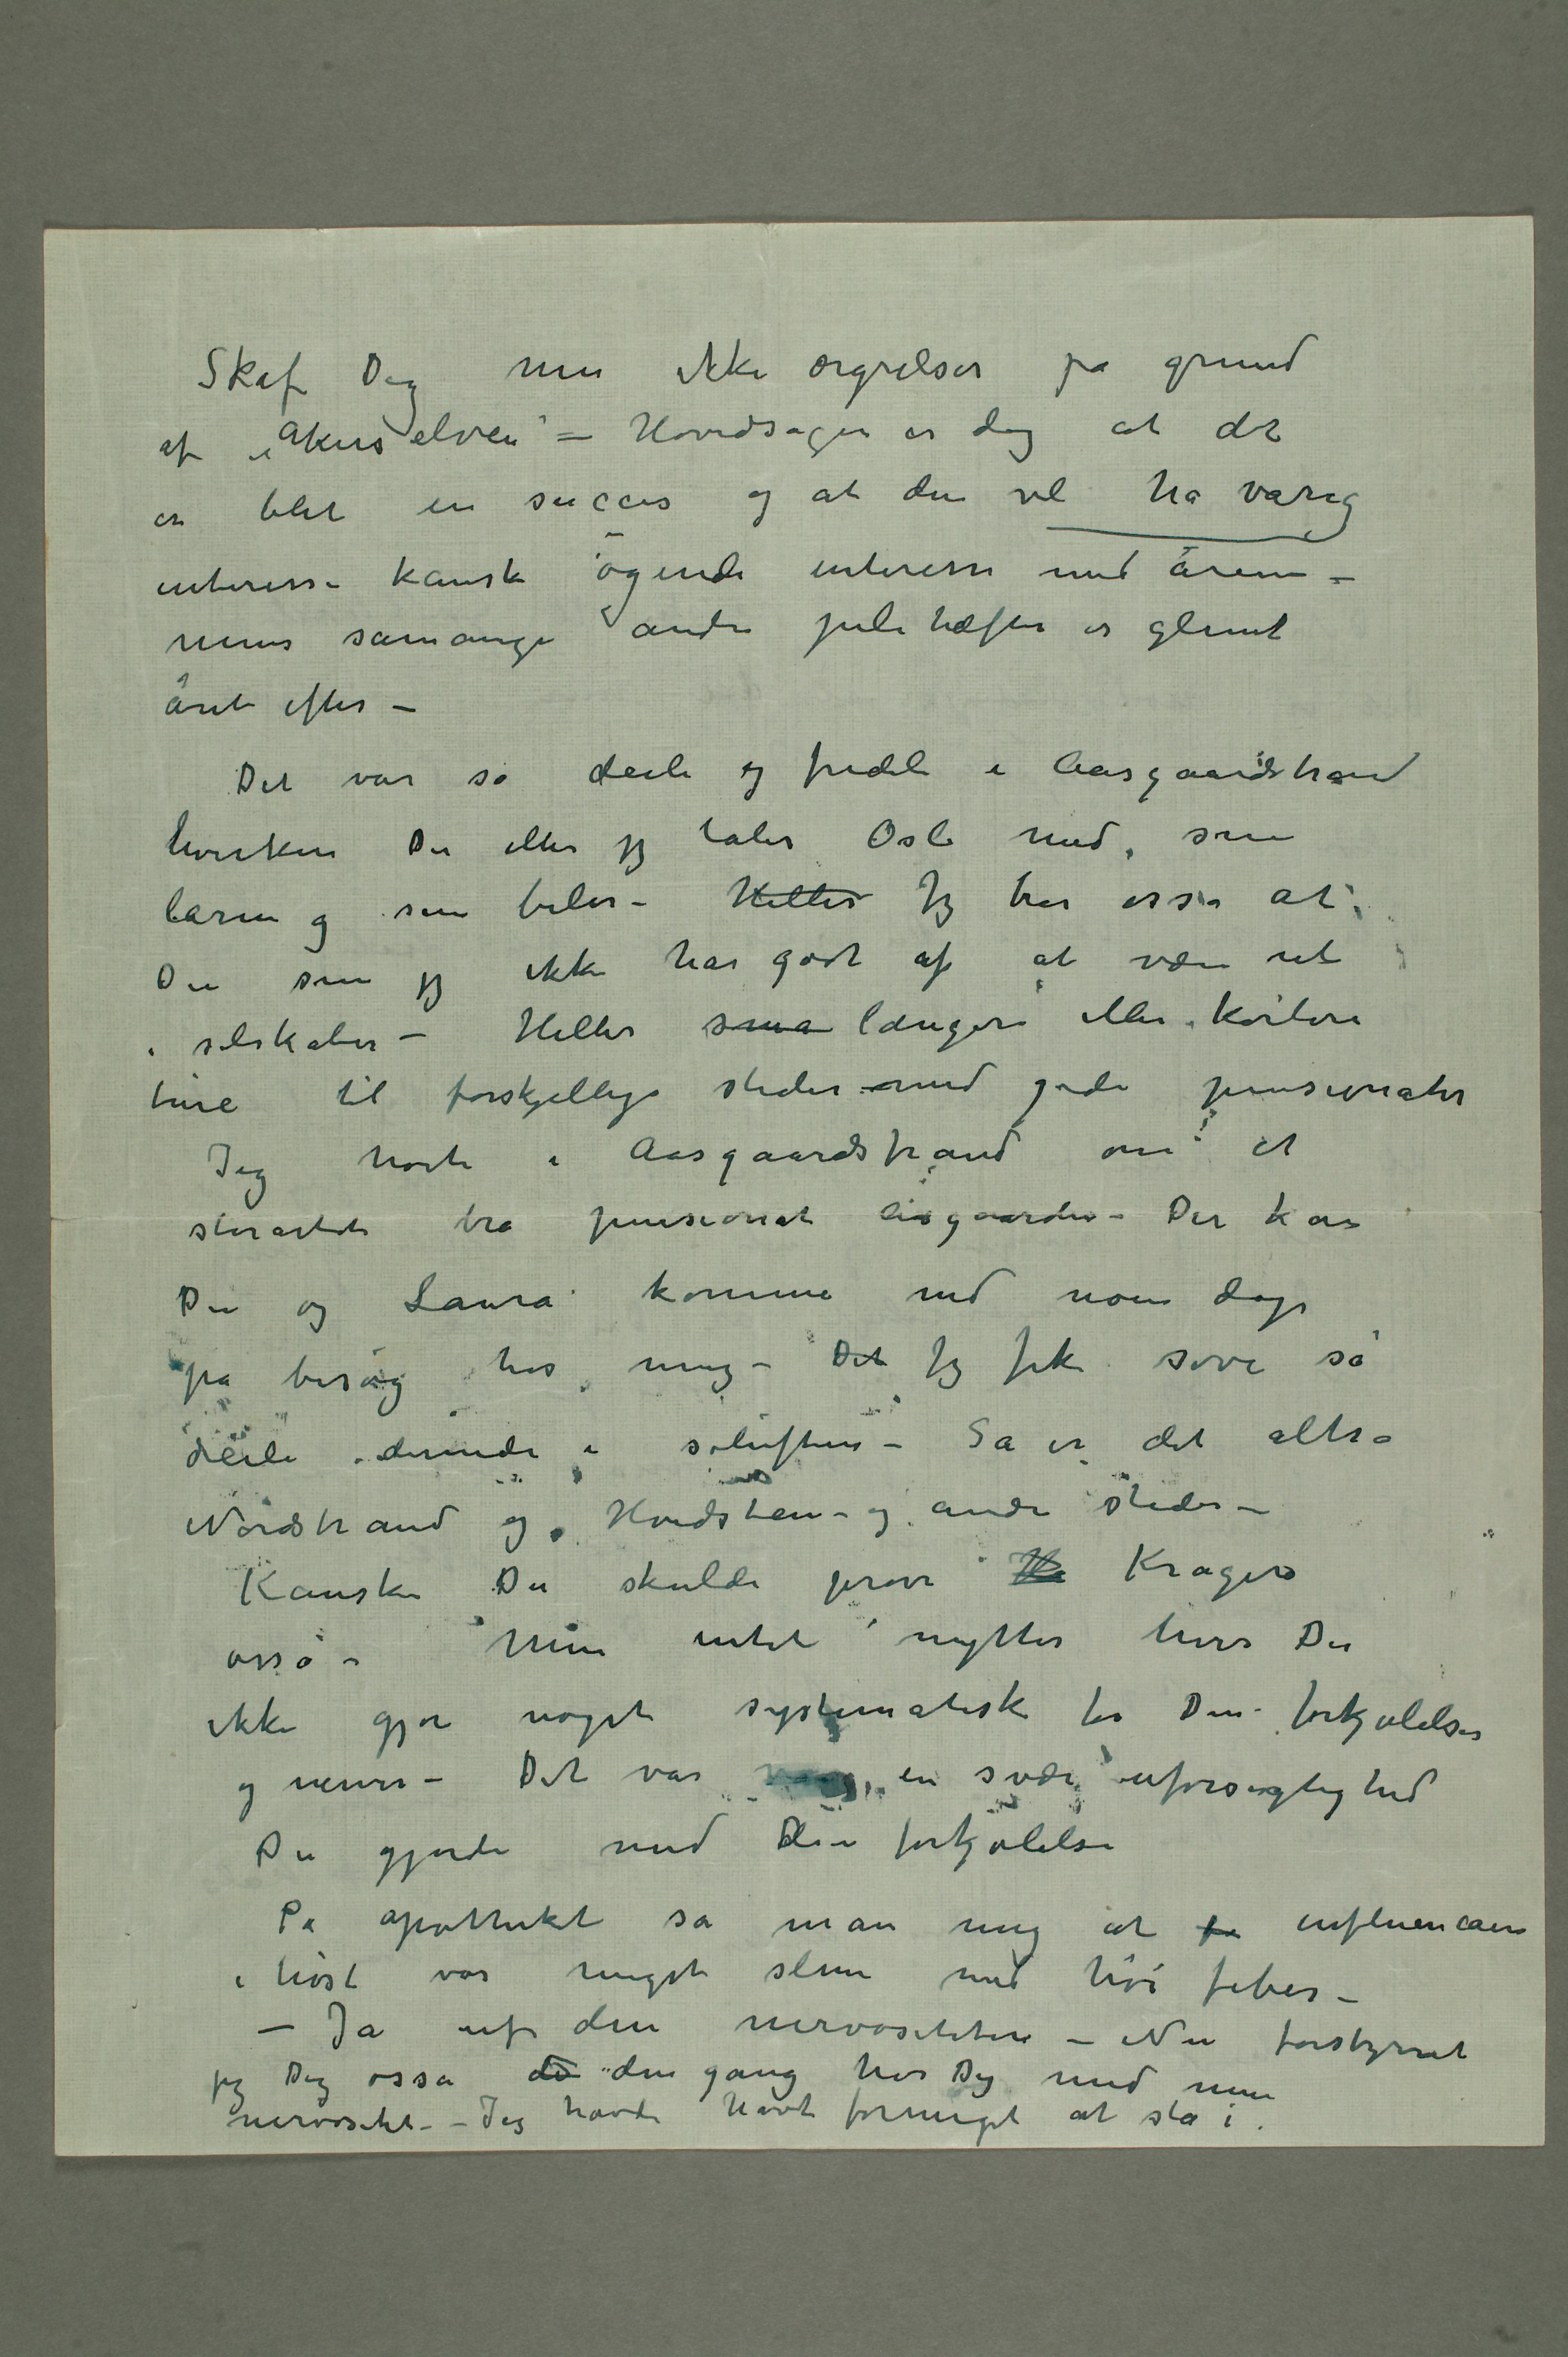 Skaf Dig nu ikke ærgrelser på grund
af „Akerselven“ – Hovedsagen er dog at det
er blet en succes og at den vil ha varig
interesse kanske øgende interesse med årene –
mens så mange andre julehæfter er glemt
året efter –
Det var så deili og fredeli i Aasgaardstrand
hverken Du eller jeg tåler Oslo med sine
larm og sine biler – Heller Jeg tror osså at
Du som jeg ikke har godt af at være ute
i selskaber – Heller små længere eller kortere
ture til forskjellige steder med gode pensionater
Jeg hørte i Aasgaardstrand om et
storartet bra pensionat Åsgaarden – Der kan
Du og Laura komme ned noen dage
på besøg hos mig – Det Jeg fik sove så
deili dernede i søluften – Så er det altså
Nordstrand og Hvidsten – og andre steder –
Kanske Du skulde prøve Kragerø
osså – Men intet nytter hvis Du
ikke gjør noget systematisk for Din forkjølelse
og nerver – Det var en svær uforsigtighed
Du gjorde med Din forkjølelse
På apotheket sa man mig at influencaen
i høst var meget slem med høi feber –
– Ja uf den nervøsiteten – Nu forstyrret
jeg Dig osså den gang hos Dig med min
nervøsitet – Jeg havde havt formeget at stå i.